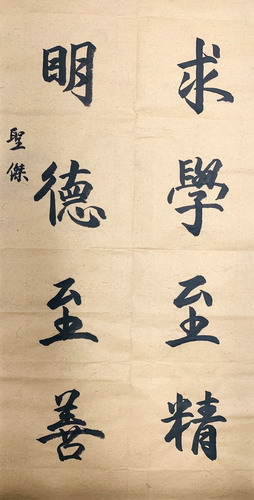 求學至精
明德至善
聖傑